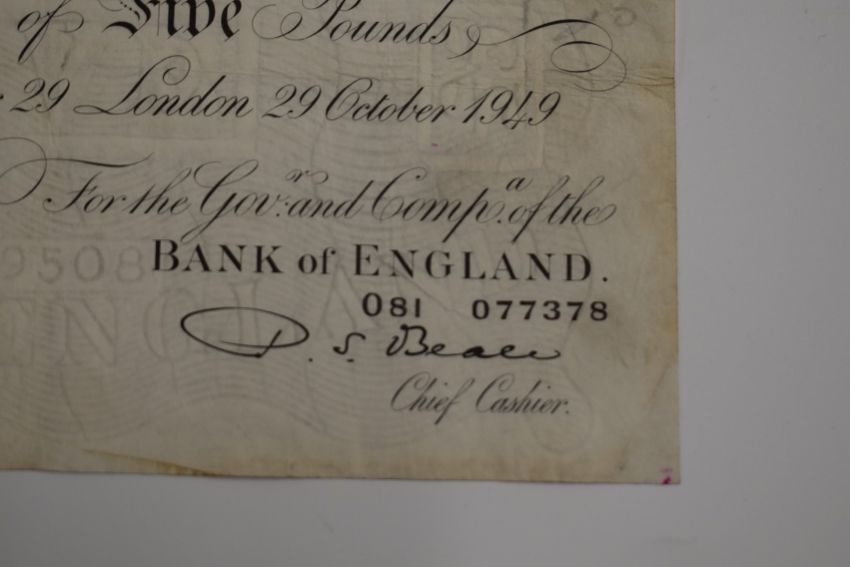 of Five Pounds
29 London 29 October 1949
For the Govr. and Compa. of the
BANK of ENGLAND.
081 077378
P. S. Beale
Chief Cashier.